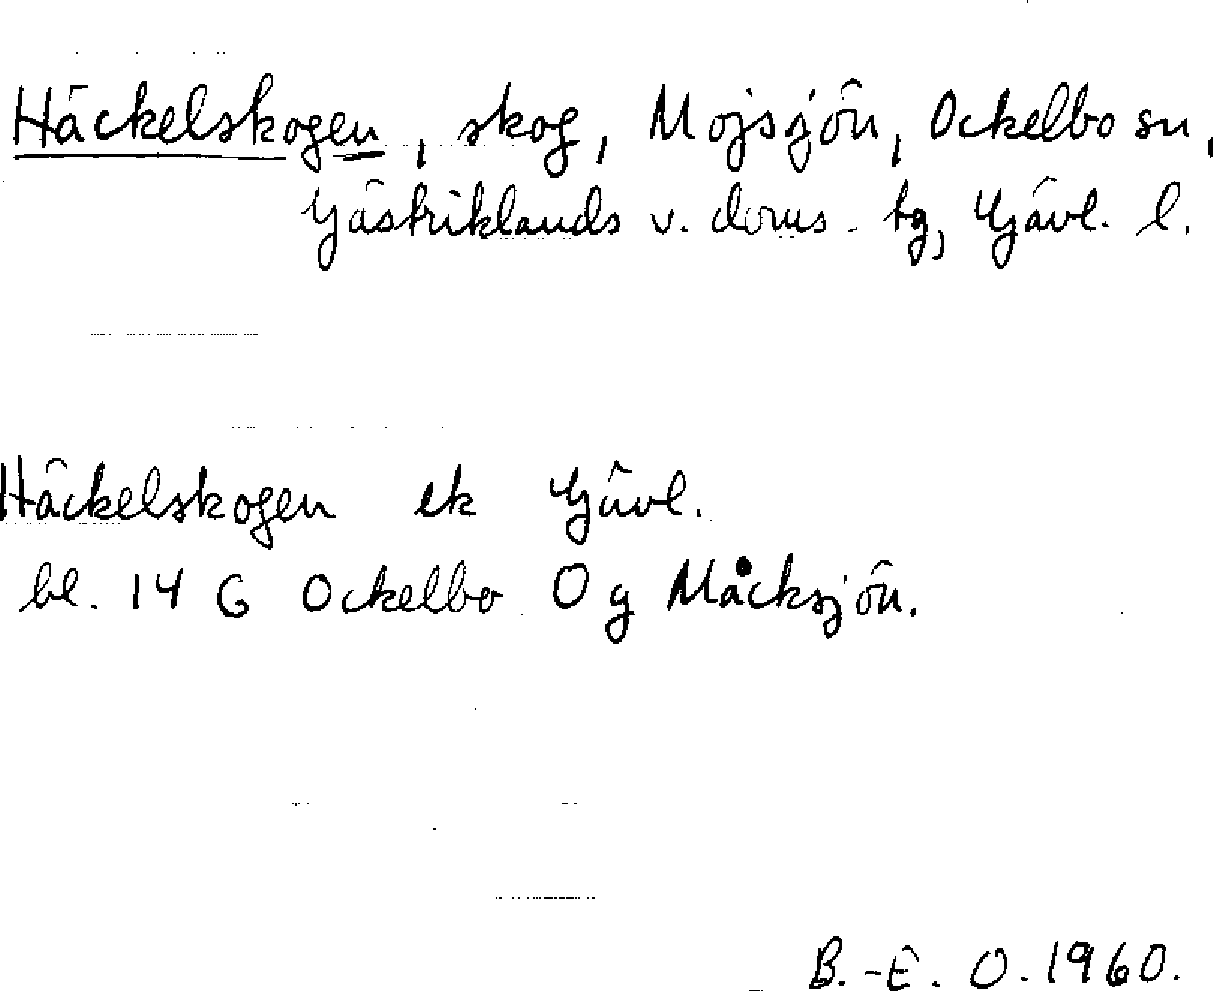 Häckelskogen, skog, Mojsjön, Ockelbo sn,
Gästriklands v. doms. tg, Gävl. l.
Häckelskogen ek Gävl.
bl. 14 G Ockelbo 0 g Måcksjön.
B.-E. O. 1960.